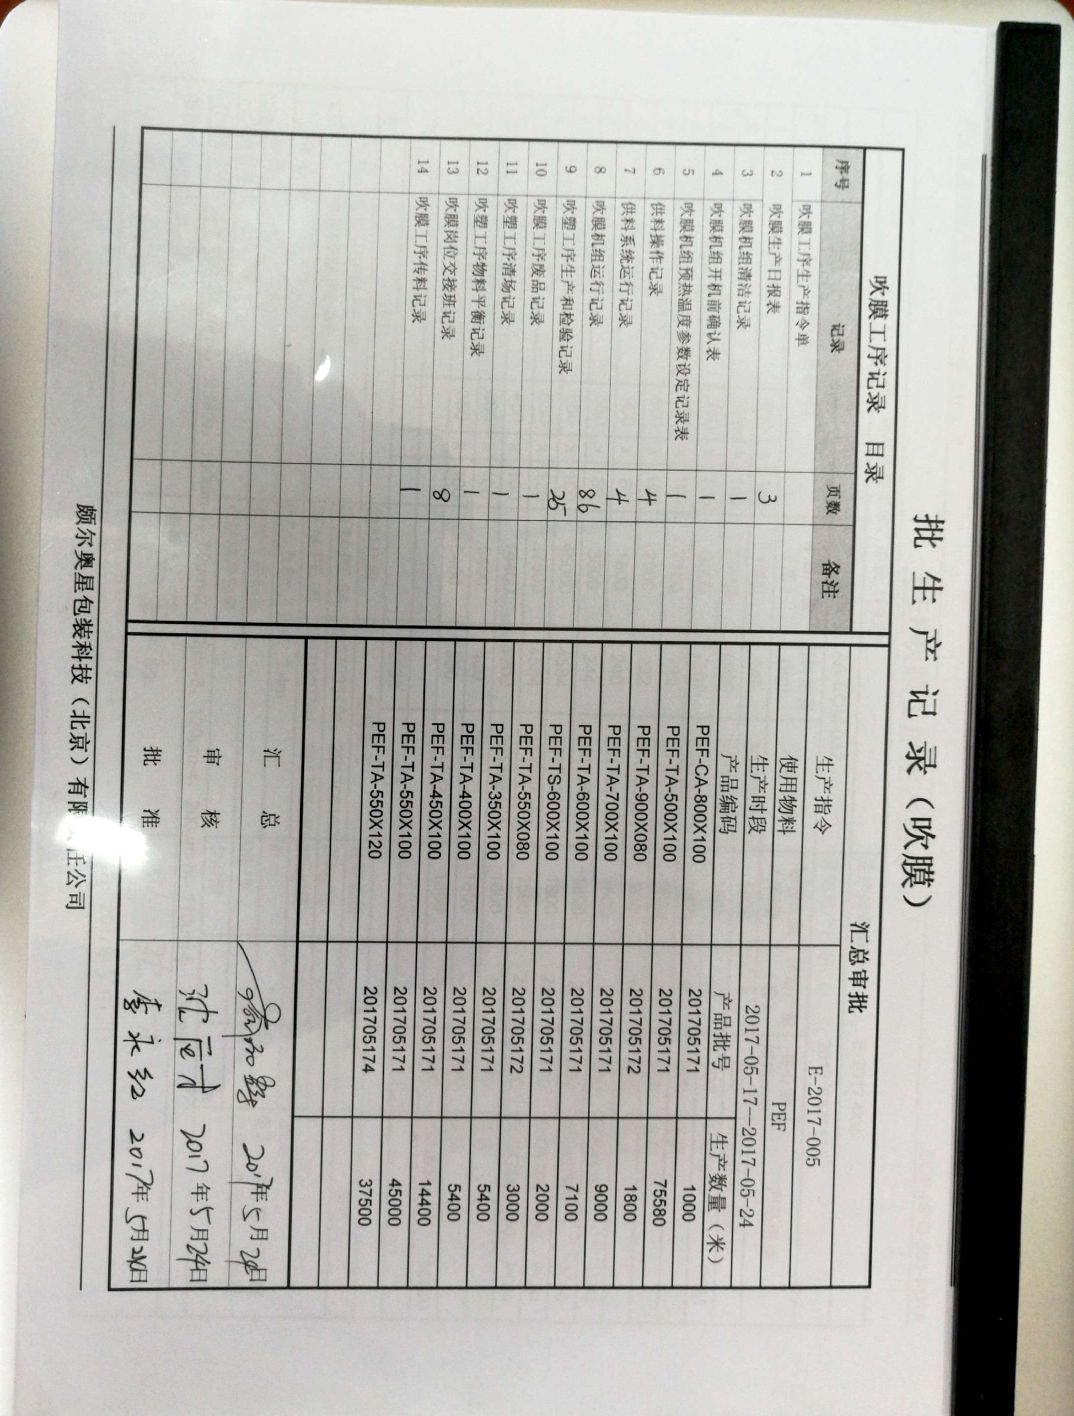 批生产记录（吹膜）
吹膜工序记录 目录
序号 记录 页数 备注
1 吹膜工序生产指令单
2 吹膜生产日报表 3
3 吹膜机组清洁记录 1
4 吹膜机组开机前确认表 1
5 吹膜机组预热温度参数设定记录表 1
6 供料操作记录 4
7 供料系统运行记录 4
8 吹膜机组运行记录 86
9 吹塑工序生产和检验记录 25
10 吹膜工序废品记录 1
11 吹塑工序清场记录 1
12 吹塑工序物料平衡记录 1
13 吹膜岗位交接班记录 8
14 吹膜工序传料记录 1
汇总审批
生产指令 E-2017-005
使用物料 PEF
生产时段 2017-05-17--2017-05-24
产品编码 产品批号 生产数量（米）
PEF-CA-800X100 201705171 1000
PEF-TA-500X100 201705171 75580
PEF-TA-900X080 201705172 1800
PEF-TA-700X100 201705171 9000
PEF-TA-600X100 201705171 7100
PEF-TS-600X100 201705171 2000
PEF-TA-550X080 201705172 3000
PEF-TA-350X100 201705171 5400
PEF-TA-400X100 201705171 5400
PEF-TA-450X100 201705171 14400
PEF-TA-550X100 201705171 45000
PEF-TA-550X120 201705174 37500
汇 总 2017年5月24日
审 核 2017年5月24日
批 准 李永红 2017年5月24日
颇尔奥星包装科技（北京）有限责任公司